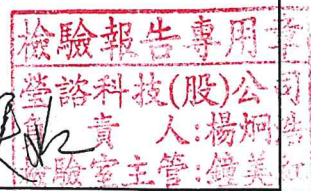 檢驗報告專用章
瑩諮科技(股)公司
負責人:楊炯浩
檢驗室主管:鐘美和